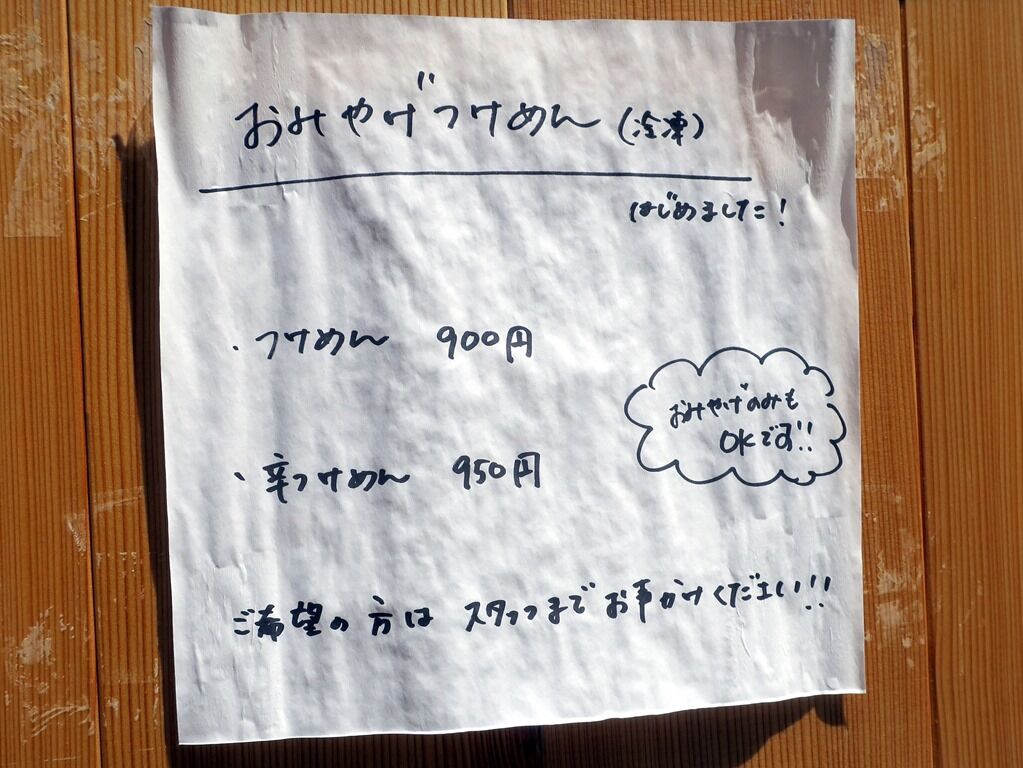 おみやげつけめん(冷凍)
はじめました!
・つけめん 900円
おみやげのみも
OKです!!
・辛つけめん 950円
ご希望の方は スタッフまでお声がけください!!